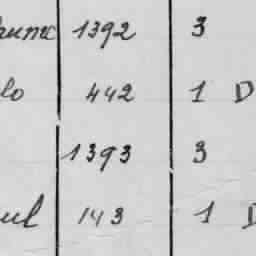 1392 3
lo 442 1 D
1393 3
ul 143 1 D